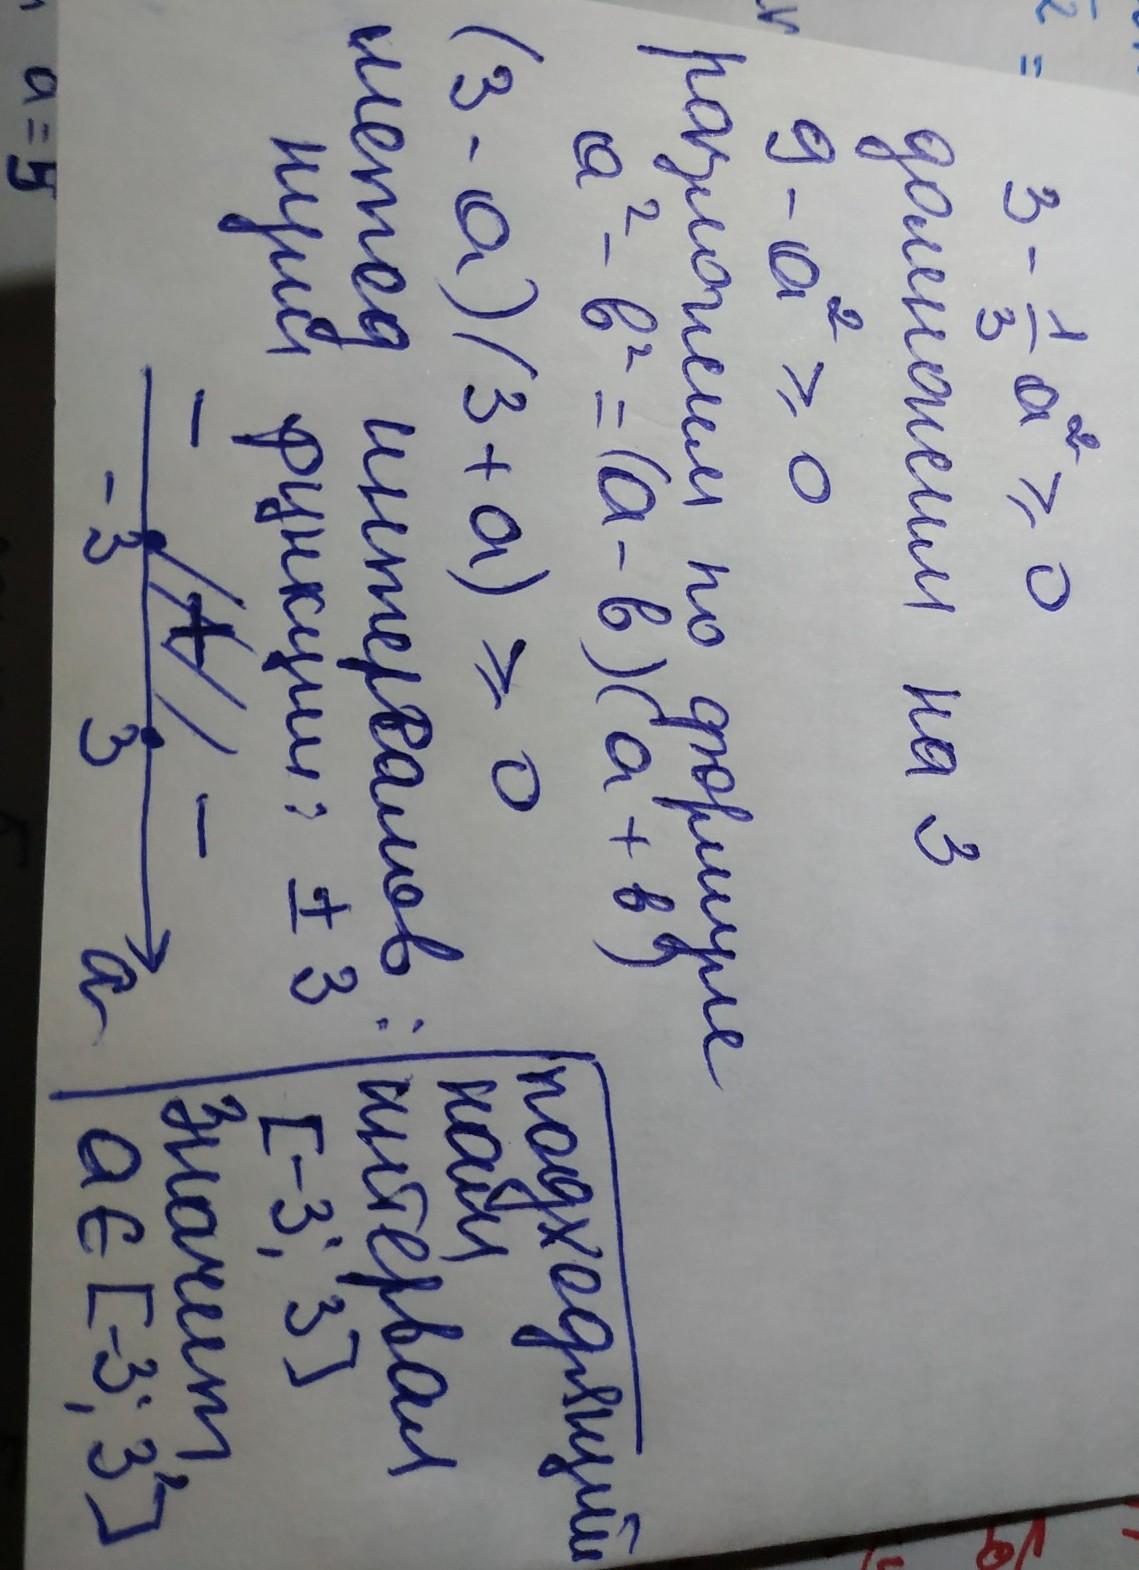 3 - 1/3 a² ⩾ 0
домножаем на 3
9 - a² ⩾ 0
разложем по формуле
a² - b² = (a - b)(a + b)
(3 - a)(3 + a) ⩾ 0
метод интервалов:
нули функции: ± 3
- + -
-3 3 a
подходящий
нам
интервал
[-3; 3]
Значит,
a ∈ [-3; 3]
a = 5
2 =